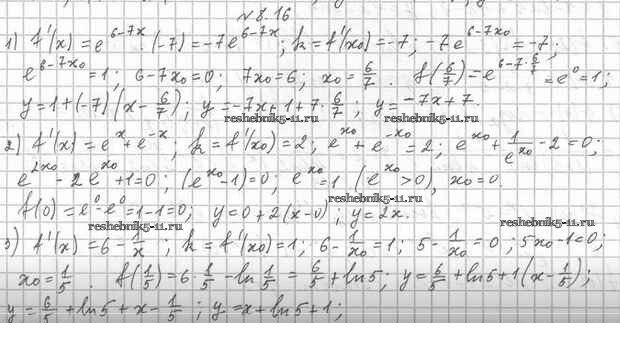 №8.16
1) f'(x)=e^{6-7x}·(-7)=-7e^{6-7x}; k=f'(x₀)=-7; -7e^{6-7x₀}=-7;
e^{6-7x₀}=1; 6-7x₀=0; 7x₀=6; x₀=6/7. f(6/7)=e^{6-7·6/7}=e⁰=1;
y=1+(-7)(x-6/7); y=-7x+1+7·6/7; y=-7x+7.
reshebnik5-11.ru reshebnik5-11.ru
2) f'(x)=e^x+e^{-x}; k=f'(x₀)=2; e^{x₀}+e^{-x₀}=2; e^{x₀}+1/e^{x₀}-2=0;
e^{2x₀}-2e^{x₀}+1=0; (e^{x₀}-1)=0; e^{x₀}=1 (e^{x₀}>0), x₀=0.
f(0)=e⁰-e⁰=1-1=0; y=0+2(x-0); y=2x.
reshebnik5-11.ru reshebnik5-11.ru
3) f'(x)=6-1/x; k=f'(x₀)=1; 6-1/x₀=1; 5-1/x₀=0; 5x₀-1=0;
x₀=1/5. f(1/5)=6·1/5-ln1/5=6/5+ln5; y=6/5+ln5+1(x-1/5);
y=6/5+ln5+x-1/5; y=x+ln5+1;